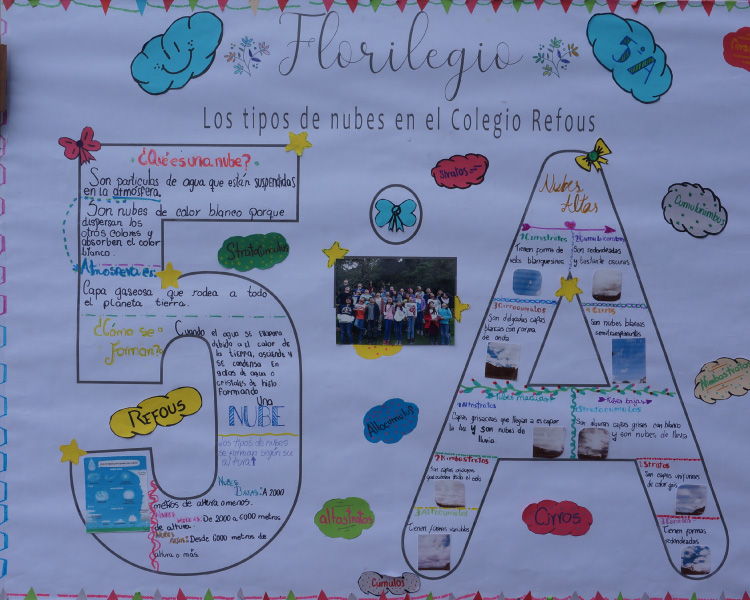 Florilegio
5°A
Los tipos de nubes en el Colegio Refous
¿Qué es una nube?
Son partículas de agua que están suspendidas
en la atmósfera.
Son nubes de color blanco porque
dispersan los
otros colores y
absorben el color
blanco.
Atmosfera es:
Capa gaseosa que rodea a todo
el planeta tierra.
¿Cómo se
forman?
Cuando el agua se evapora
debido a el calor de
la tierra, asciende y
se condensa en
gotas de agua o
cristales de hielo
formando
una
NUBE
Los tipos de nubes
se forman según su
altura
Nubes
Bajas: A 2000
metros de altura o menos.
Nubes
medias: De 2000 a 6000 metros
de altura
Nubes
altas: Desde 6000 metros de
altura o más
Stratos
Cumulonimbo
Stratocúmulos
REFOUS
Altocumulos
altostratos
Cirros
Cumulos
Nimbostratos
Nubes
Altas
Cirrostratos
Tienen forma de
velo blanquesinos
Son redondeadas
y bastante oscuras
Cirrocumulos
Son delgadas capas
blancas con forma
de onda
Cirros
Son nubes blancas
semitransparentes
Nubes medias
Nubes bajas
Altostratos
Capas grisaceas que llegan a escapar
la luz y son nubes de
lluvia.
Stratocumulos
Son algunas capas grises con blanco
y son nubes de lluvia
Nimbostratos
Son capas oscuras
Altocumulos
Tienen formas variables
Stratos
Son capas uniformes
de color gris
Cumulos
Tienen formas
redondeadas